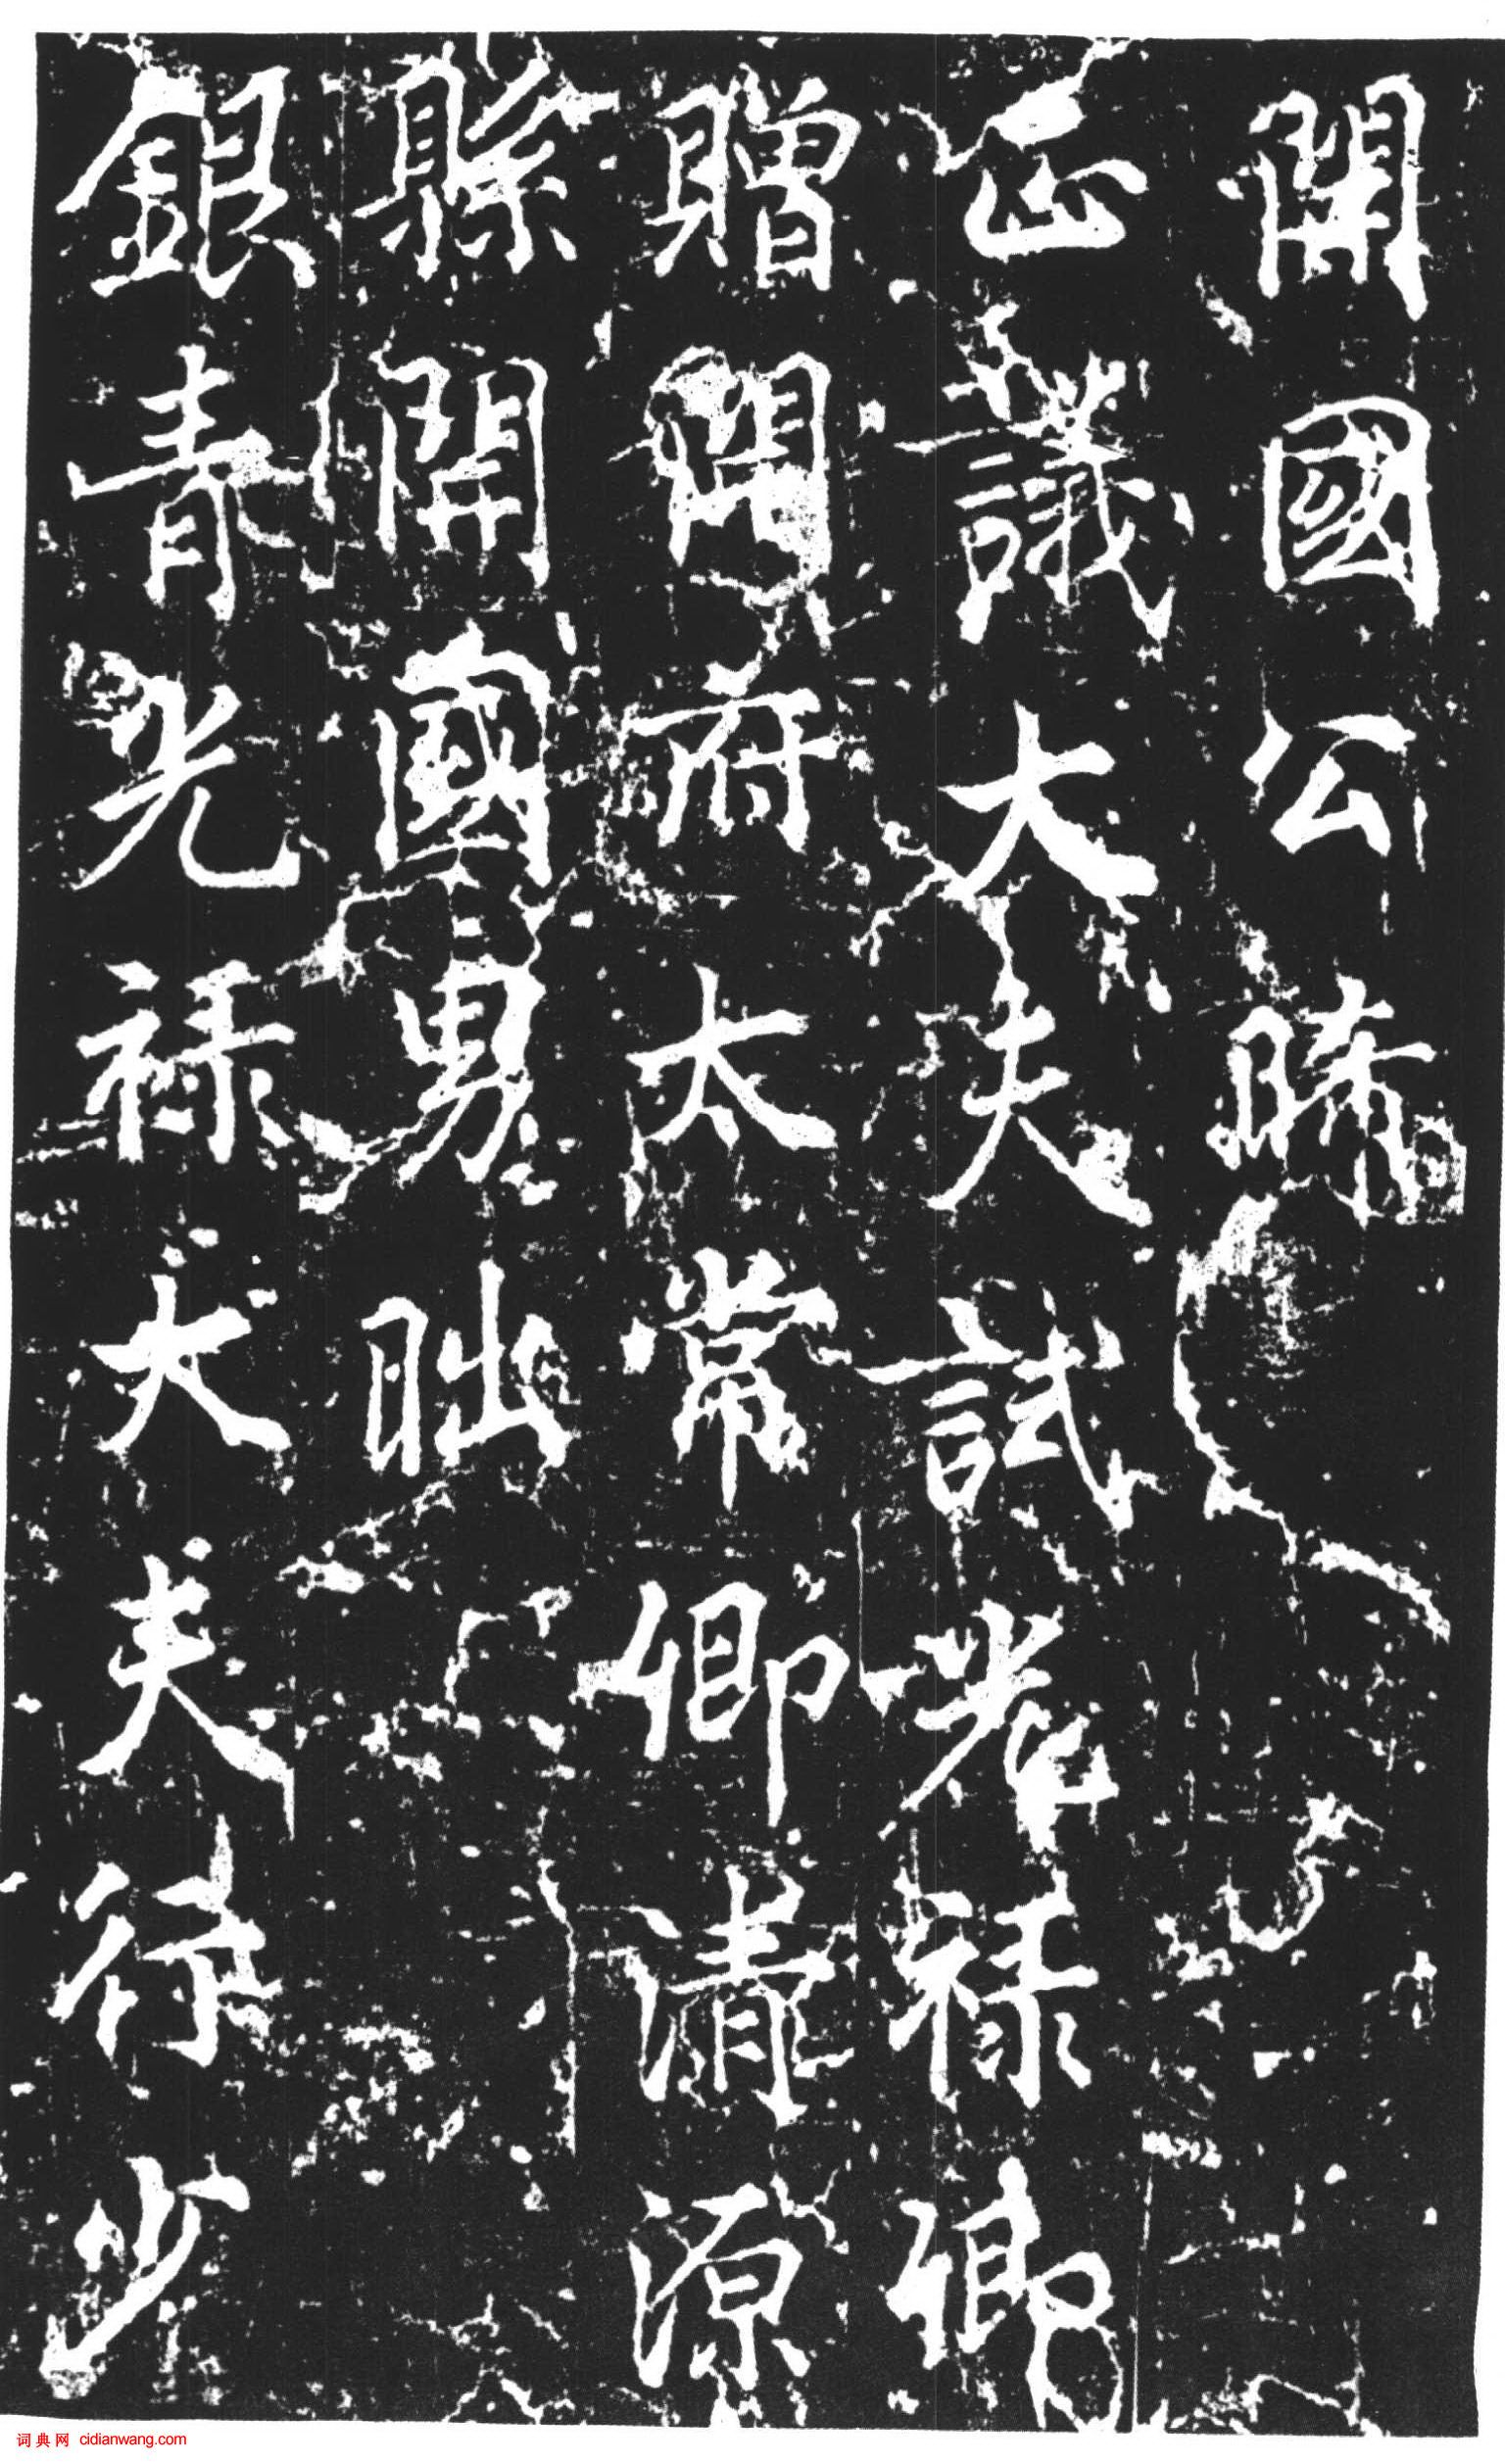 開國公晞
正議大夫試光祿卿
贈開府太常卿清源
縣開國男昢
銀青光祿大夫行少
词典网 cidianwang.com